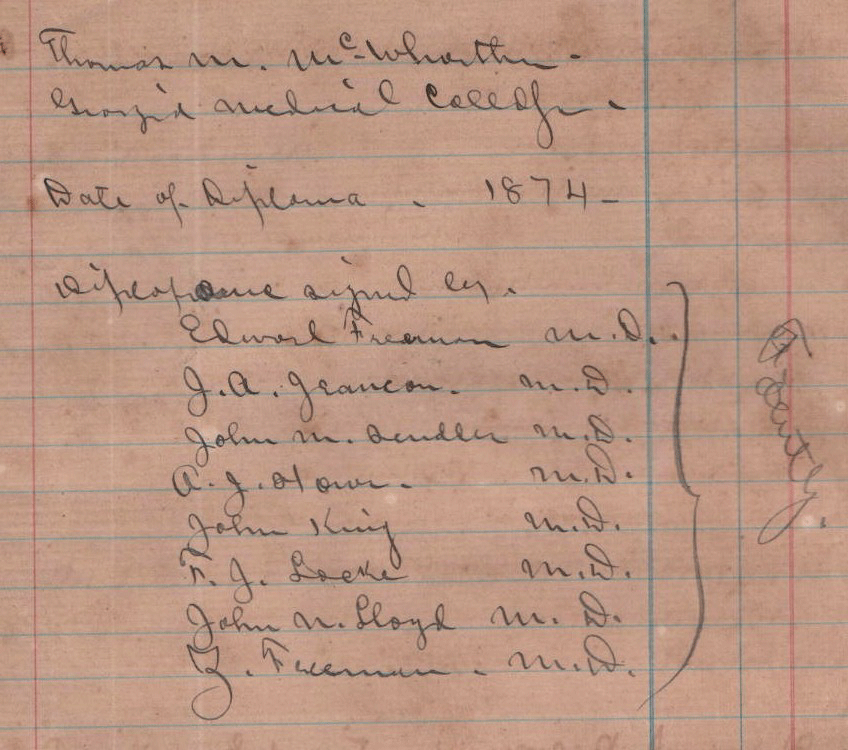 Thomas M. McWhorter -
Georgia Medical College.
Date of Diploma. 1874-
Diploma signed by.
Edward Freeman M.D.
J. A. Jeancon. M.D.
John M. Scudder M.D.
A. J. Howe. M.D.
John King M.D.
F. J. Locke M.D.
John N. Lloyd M.D.
Z. Freeman. M.D.
Faculty.